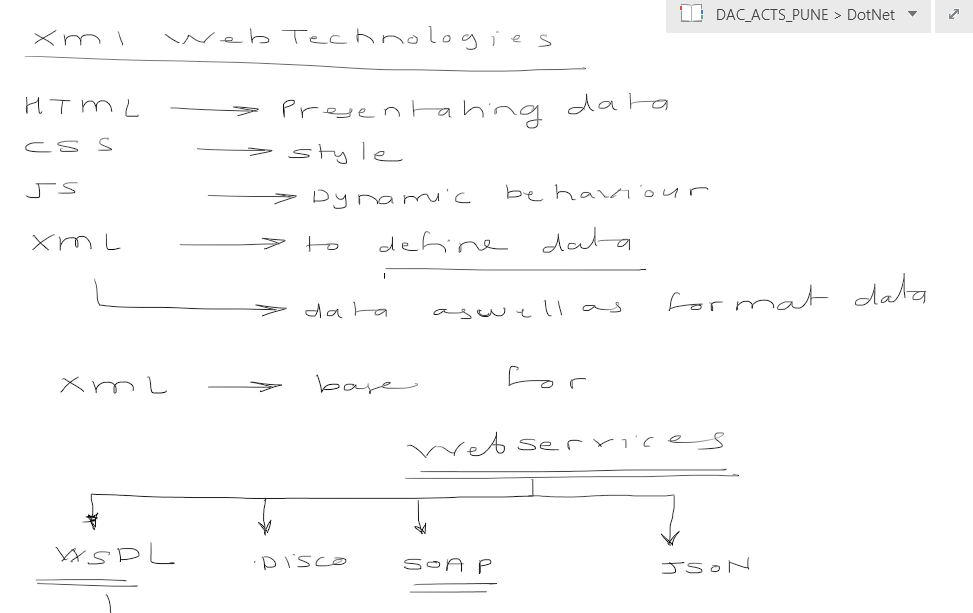 DAC_ACTS_PUNE > DotNet
Xml WebTechnologies
HTML → Presentating data
CSS → style
JS → Dynamic behaviour
XML → to define data
→ data aswell as format data
XML → base for
Webservices
WSDL DISCO SOAP JSON